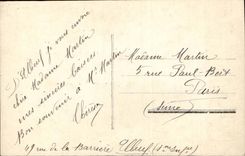 D'Elbeuf je vous envoie
chère Madame Martin
mes sincères
Bon souvenir à Mr Martin
Madame Martin
5 rue Paul-Bert
Paris
(Seine)
49 rue de la Barrière Elbeuf